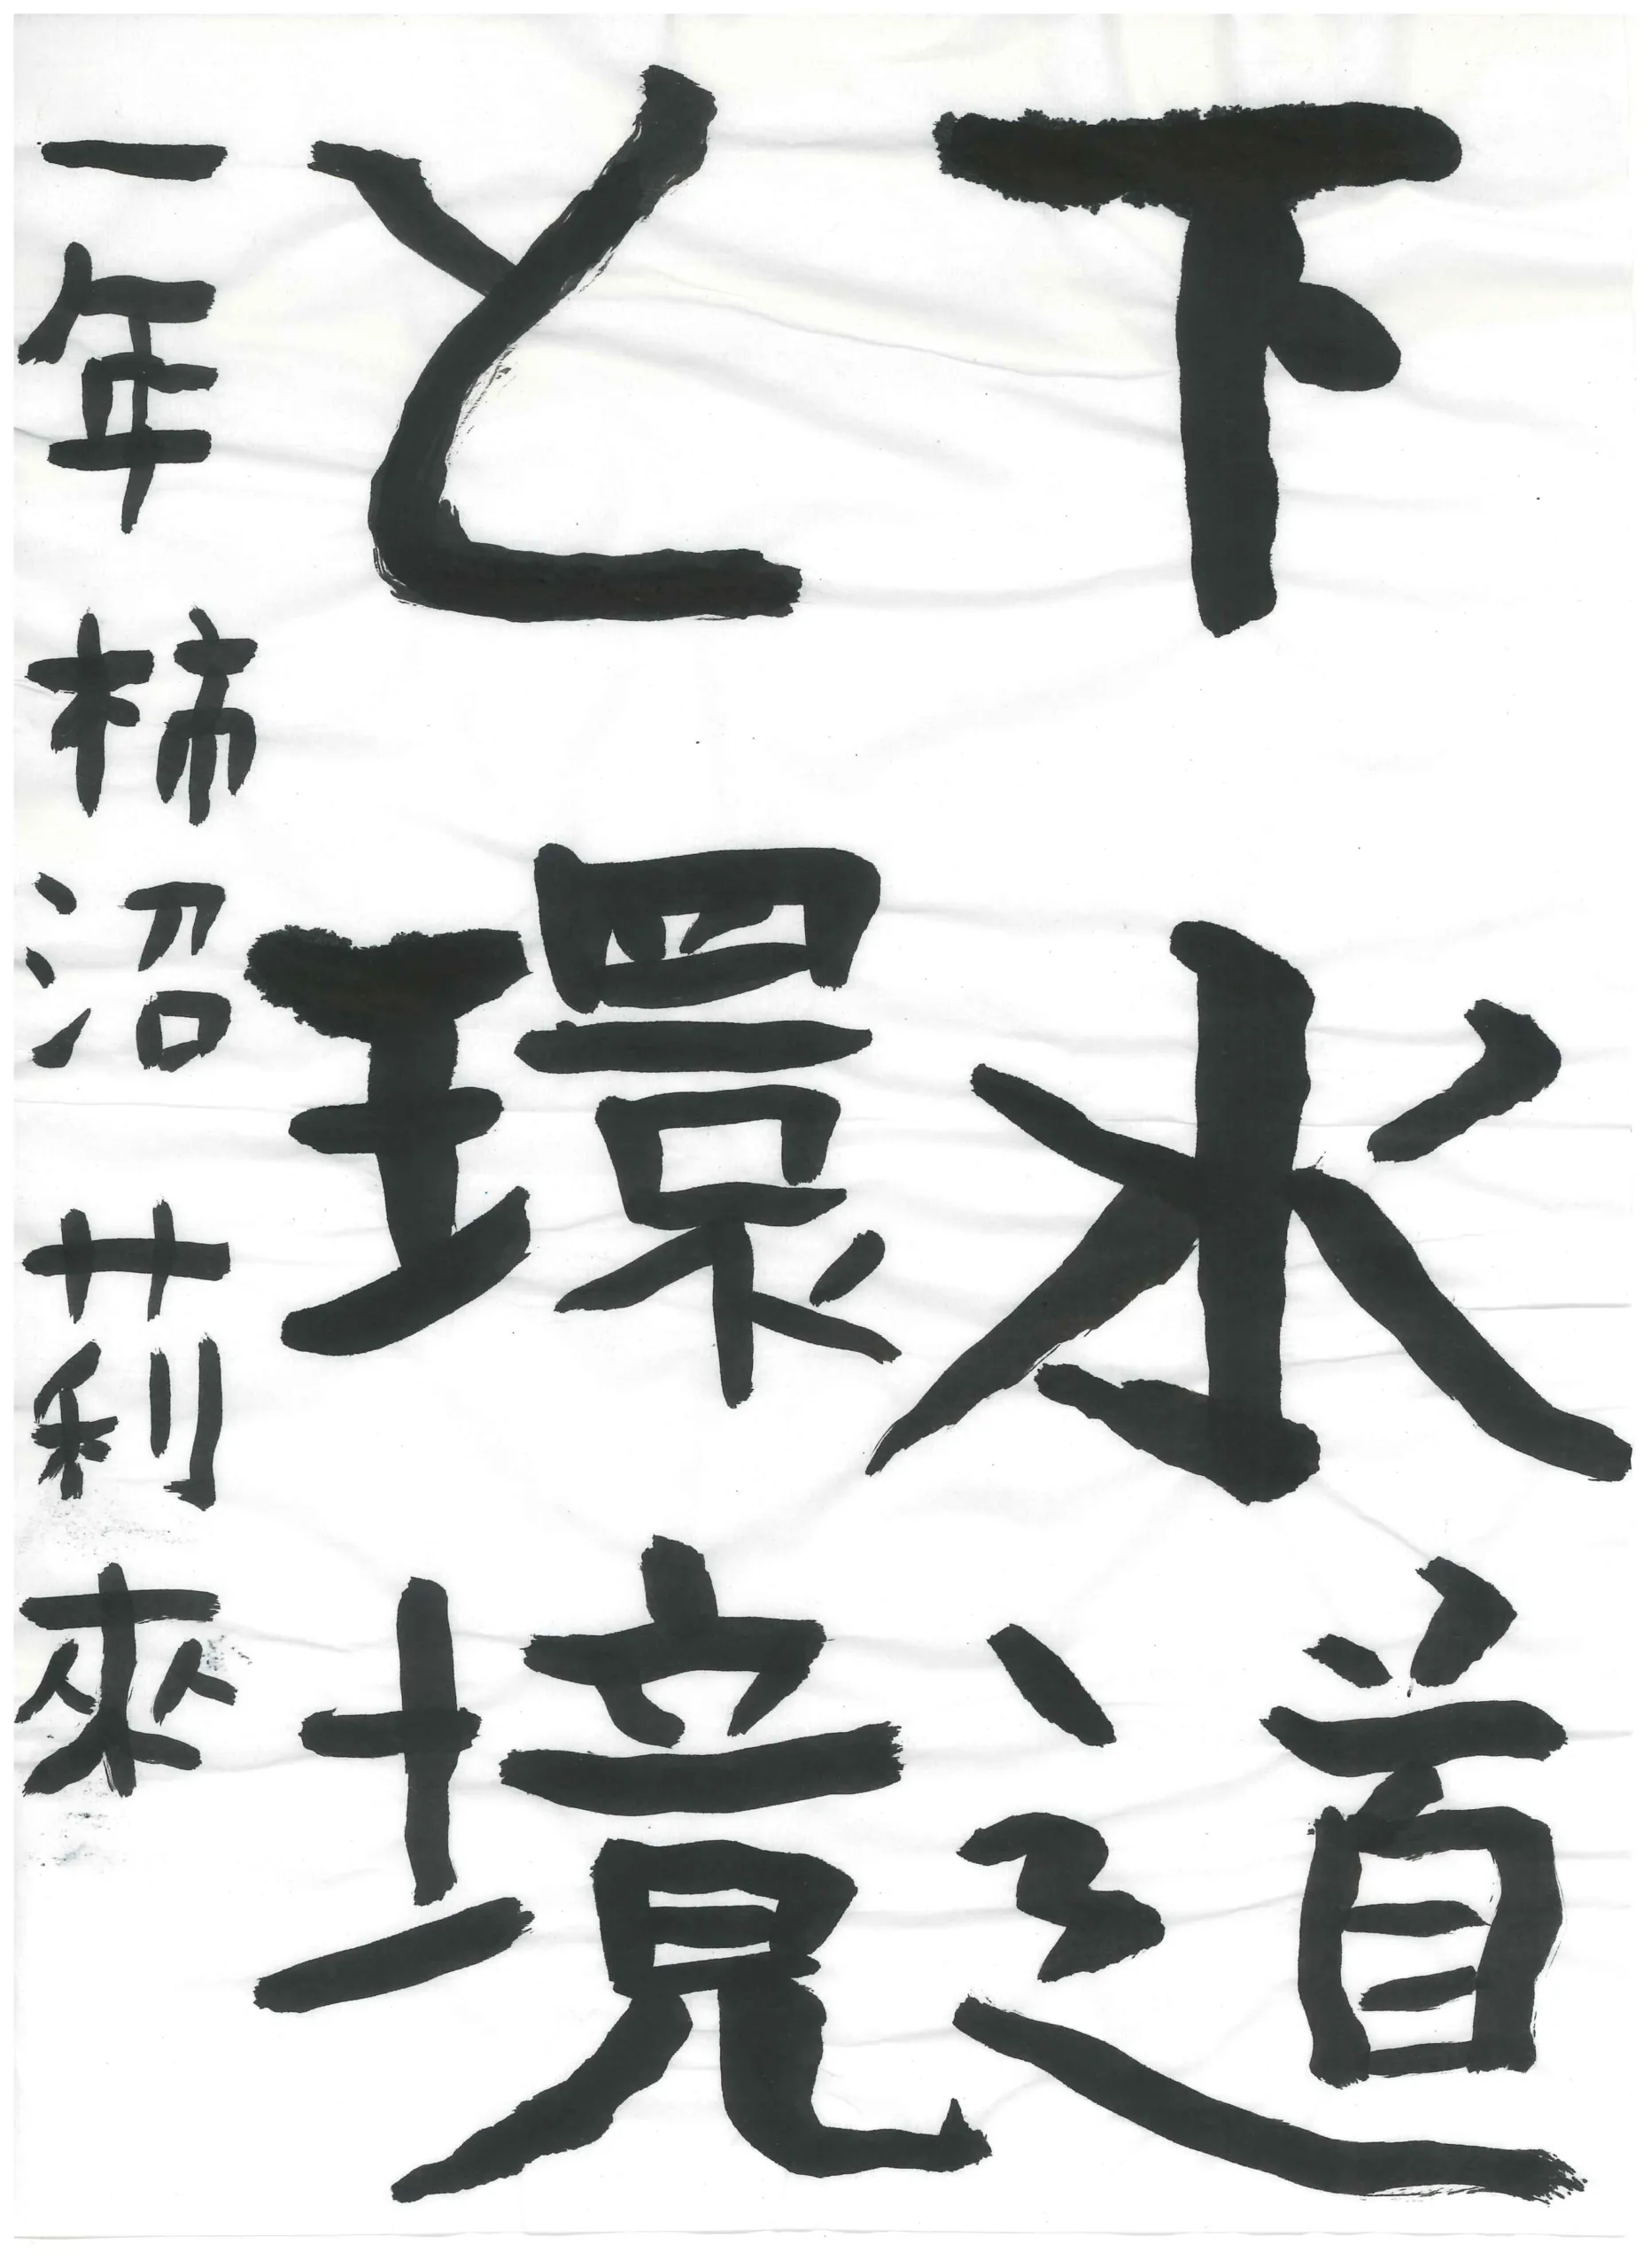 下水道
と環境
一年柿沼莉來